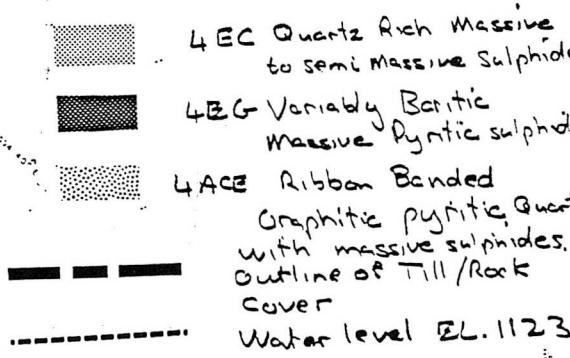 4EC Quartz Rich Massive
to semi Massive Sulphide
4EG Variably Baritic
Massive Pyritic sulphid
4ACE Ribbon Banded
Graphitic pyritic Quart
with massive sulphides.
Outline of Till/Rock
Cover
Water level EL. 1123